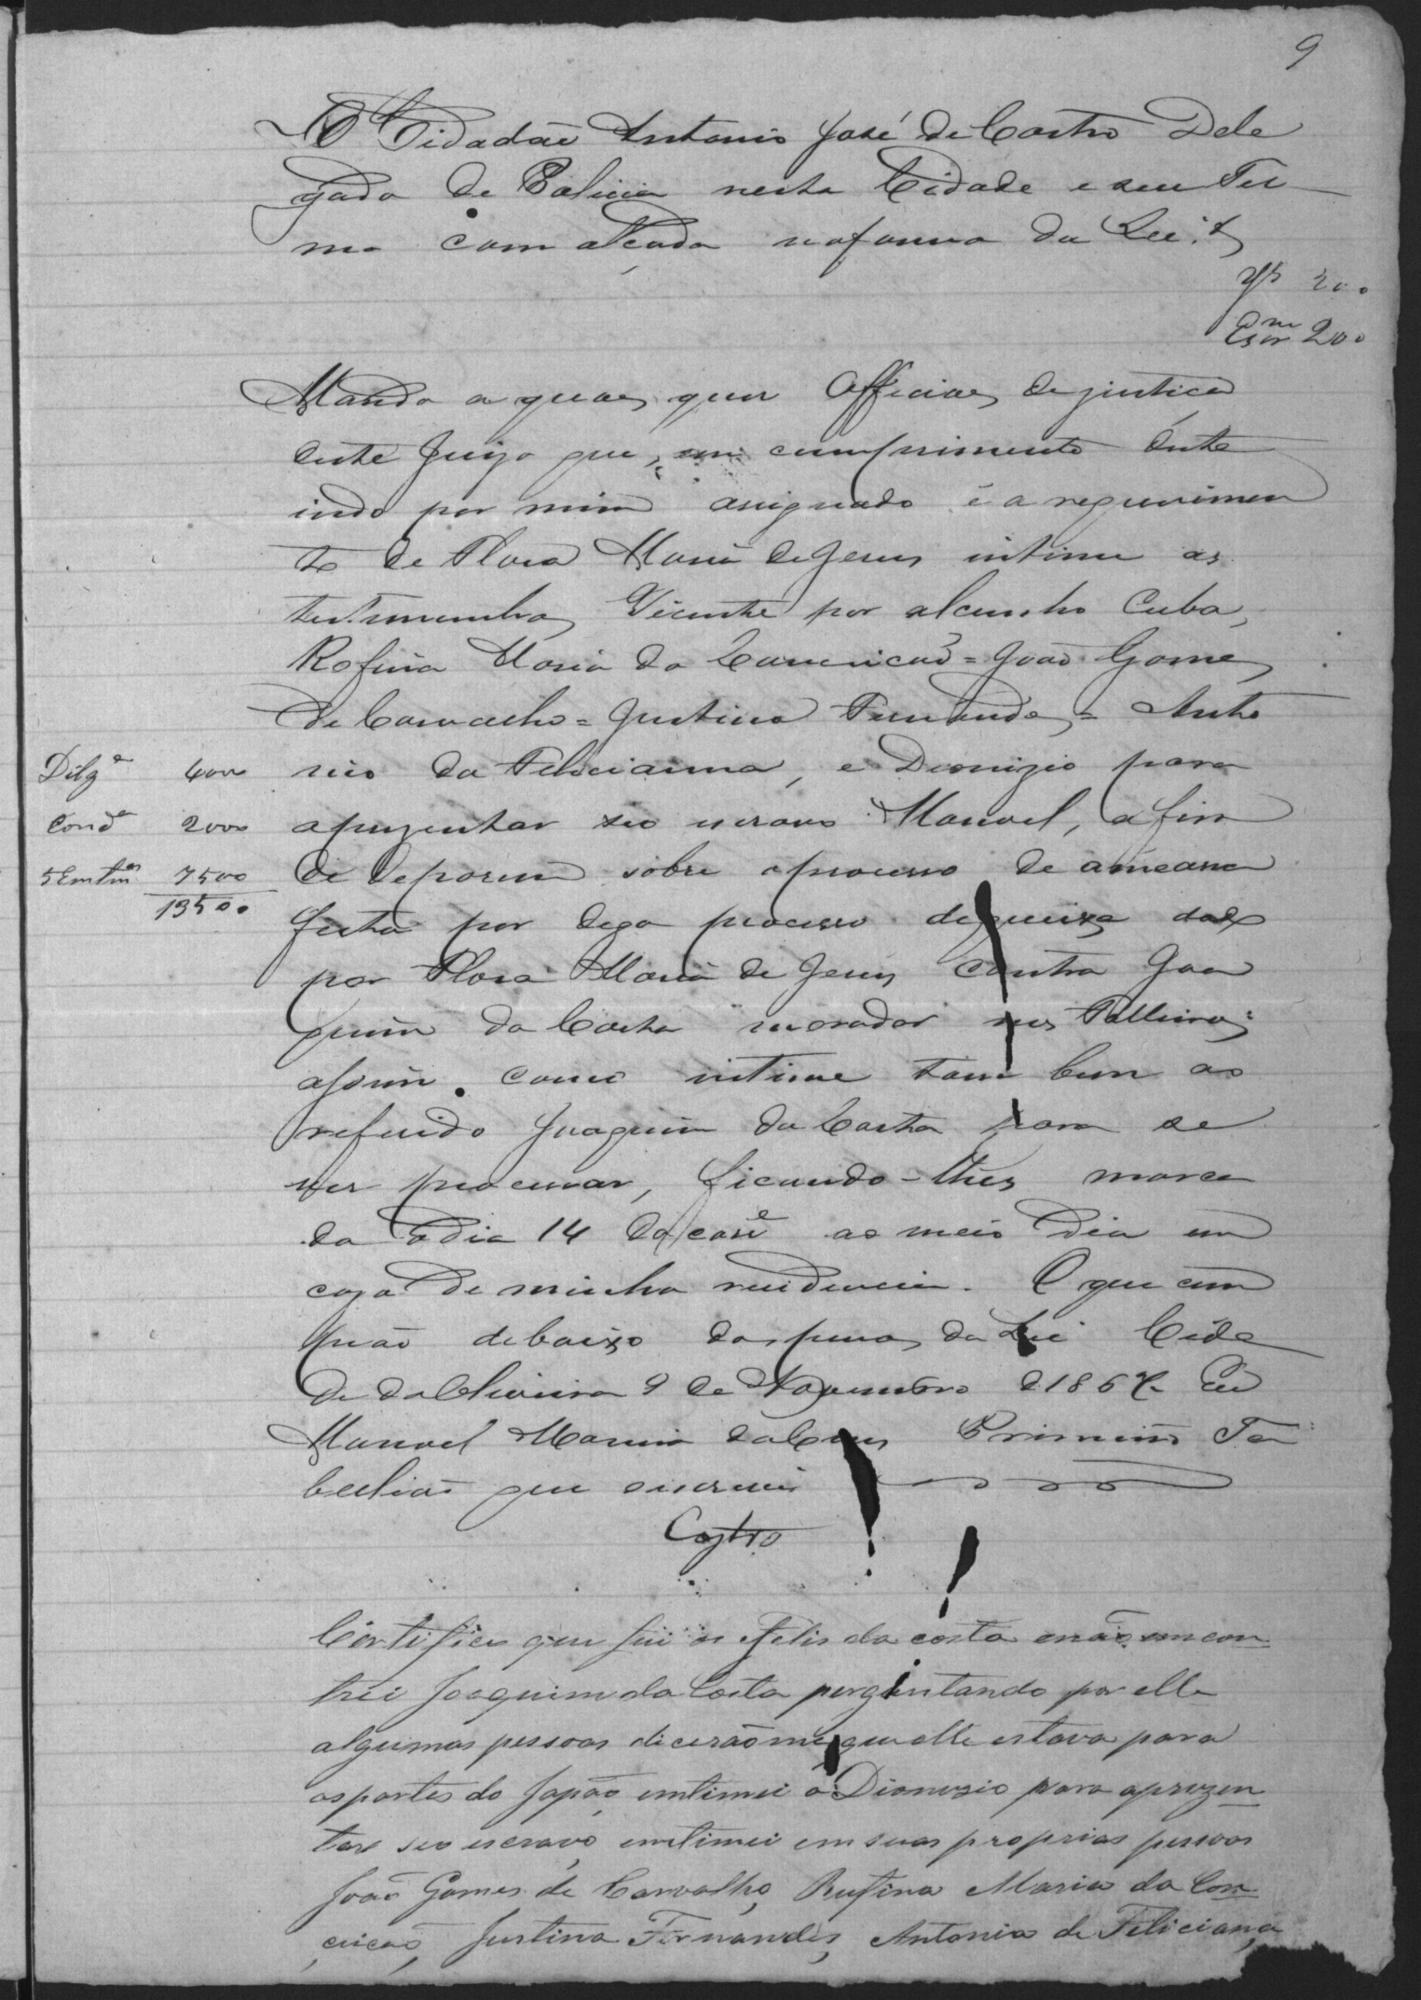 9
O Cidadão Antonio José de Castro Dele
gado de Policia nesta Cidade e seu Ter
mo com alçada na forma da Lei &
200
200
Mando a quaes quer Officiaes de justica
deste Juizo que, em cumprimento deste
indo por mim asignado e a requerimen
to de Flora Maria de Jesus intime as
testemunhas Vicente por alcunho Cuba,
Rofina Maria da Conceicaõ = João Gomes
de Carvalho = Justina Fernandes = Anto
nio da Felicianna, e Dionizio para
aprezentar seo escravo Manoel, a fim
de deporem sobre o processo de ameassa
feita por digo processo de queixa dada
por Flora Maria de Jesus contra Joa
quim da Costa morador nos
assim como intime tam bem ao
referido Joaquim da Costa para se
ver processar, ficando-lhes marca
do o dia 14 do corrᵉ ao meio dia em
caza de minha residencia. O que cum
prão debaixo das penas da Lei Cida
de da Oliveira 9 de Novembro d 186 Eu
Manoel Maria da Cruz Primeiro Ta
bellião que escrevi
Castro
Dilgᵃ 4000
Condᵃ 2000
5 Emtmᵉˢ 7500
13500
Certifico que fui a Felis da costa enão emcon
trei Joaquim da Costa perguntando por elle
algumas pessoas dicerãome que elle estava para
as partes do Japão, emtimei a Dionezio para aprezen
tar seo escravo, emtimei em suas proprias pessoas
João Gomes de Carvalho, Rufina Maria da Con
ceicaõ, Justina Fernandes, Antonio de Feliciana,